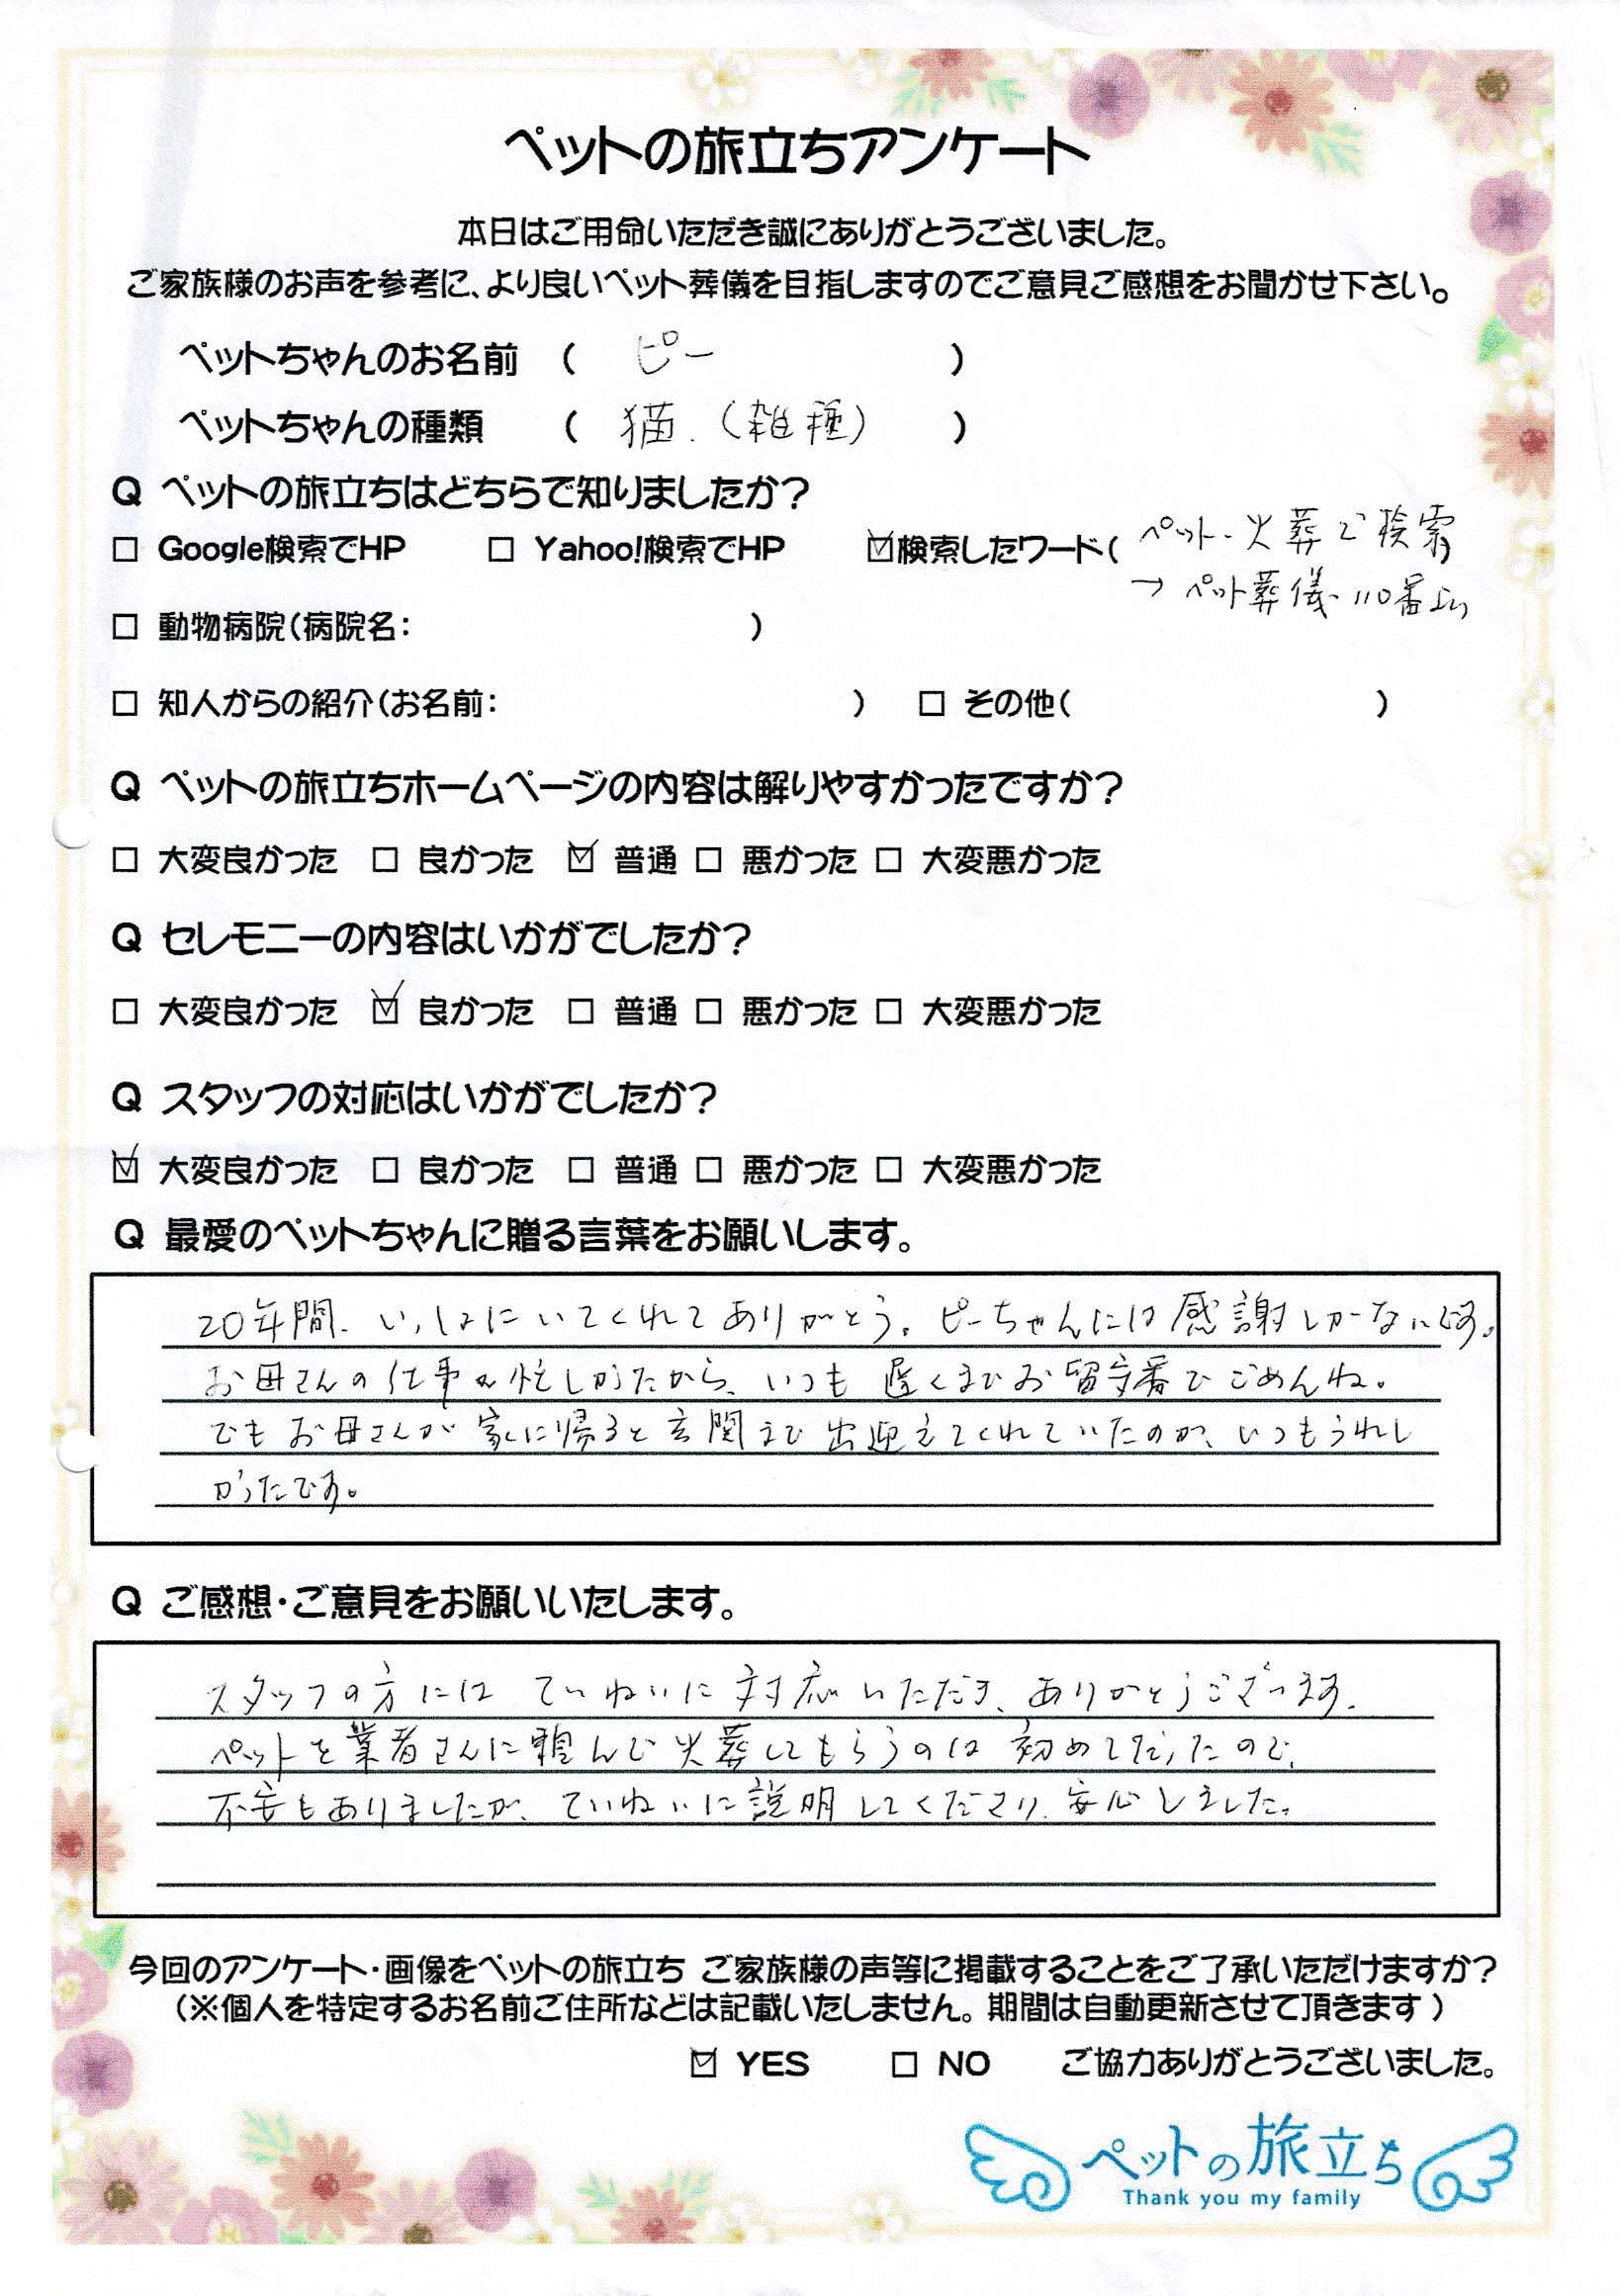 ペットの旅立ちアンケート
本日はご用命いただき誠にありがとうございました。
ご家族様のお声を参考に、より良いペット葬儀を目指しますのでご意見ご感想をお聞かせ下さい。
ペットちゃんのお名前 ( ピー )
ペットちゃんの種類 ( 猫.(雑種) )
Q ペットの旅立ちはどちらで知りましたか?
□ Google検索でHP □ Yahoo!検索でHP ☑検索したワード( ペット・火葬で検索)
→ ペット葬儀110番より
□ 動物病院(病院名: )
□ 知人からの紹介(お名前: ) □ その他( )
Q ペットの旅立ちホームページの内容は解りやすかったですか?
□ 大変良かった □ 良かった ☑ 普通 □ 悪かった □ 大変悪かった
Q セレモニーの内容はいかがでしたか?
□ 大変良かった ☑ 良かった □ 普通 □ 悪かった □ 大変悪かった
Q スタッフの対応はいかがでしたか?
☑ 大変良かった □ 良かった □ 普通 □ 悪かった □ 大変悪かった
Q 最愛のペットちゃんに贈る言葉をお願いします。
20年間、いっしょにいてくれてありがとう。ピーちゃんには感謝しかないです。
お母さんの仕事が忙しかったから、いつも遅くまでお留守番でごめんね。
でもお母さんが家に帰ると玄関まで出迎えてくれていたのが、いつもうれし
かったです。
Q ご感想・ご意見をお願いいたします。
スタッフの方にはていねいに対応いただき、ありがとうございます。
ペットを業者さんに頼んで火葬してもらうのは初めてだったので、
不安もありましたが、ていねいに説明してくださり、安心しました。
今回のアンケート・画像をペットの旅立ち ご家族様の声等に掲載することをご了承いただけますか?
(※個人を特定するお名前ご住所などは記載いたしません。期間は自動更新させて頂きます)
☑ YES □ NO ご協力ありがとうございました。
ペットの旅立ち
Thank you my family